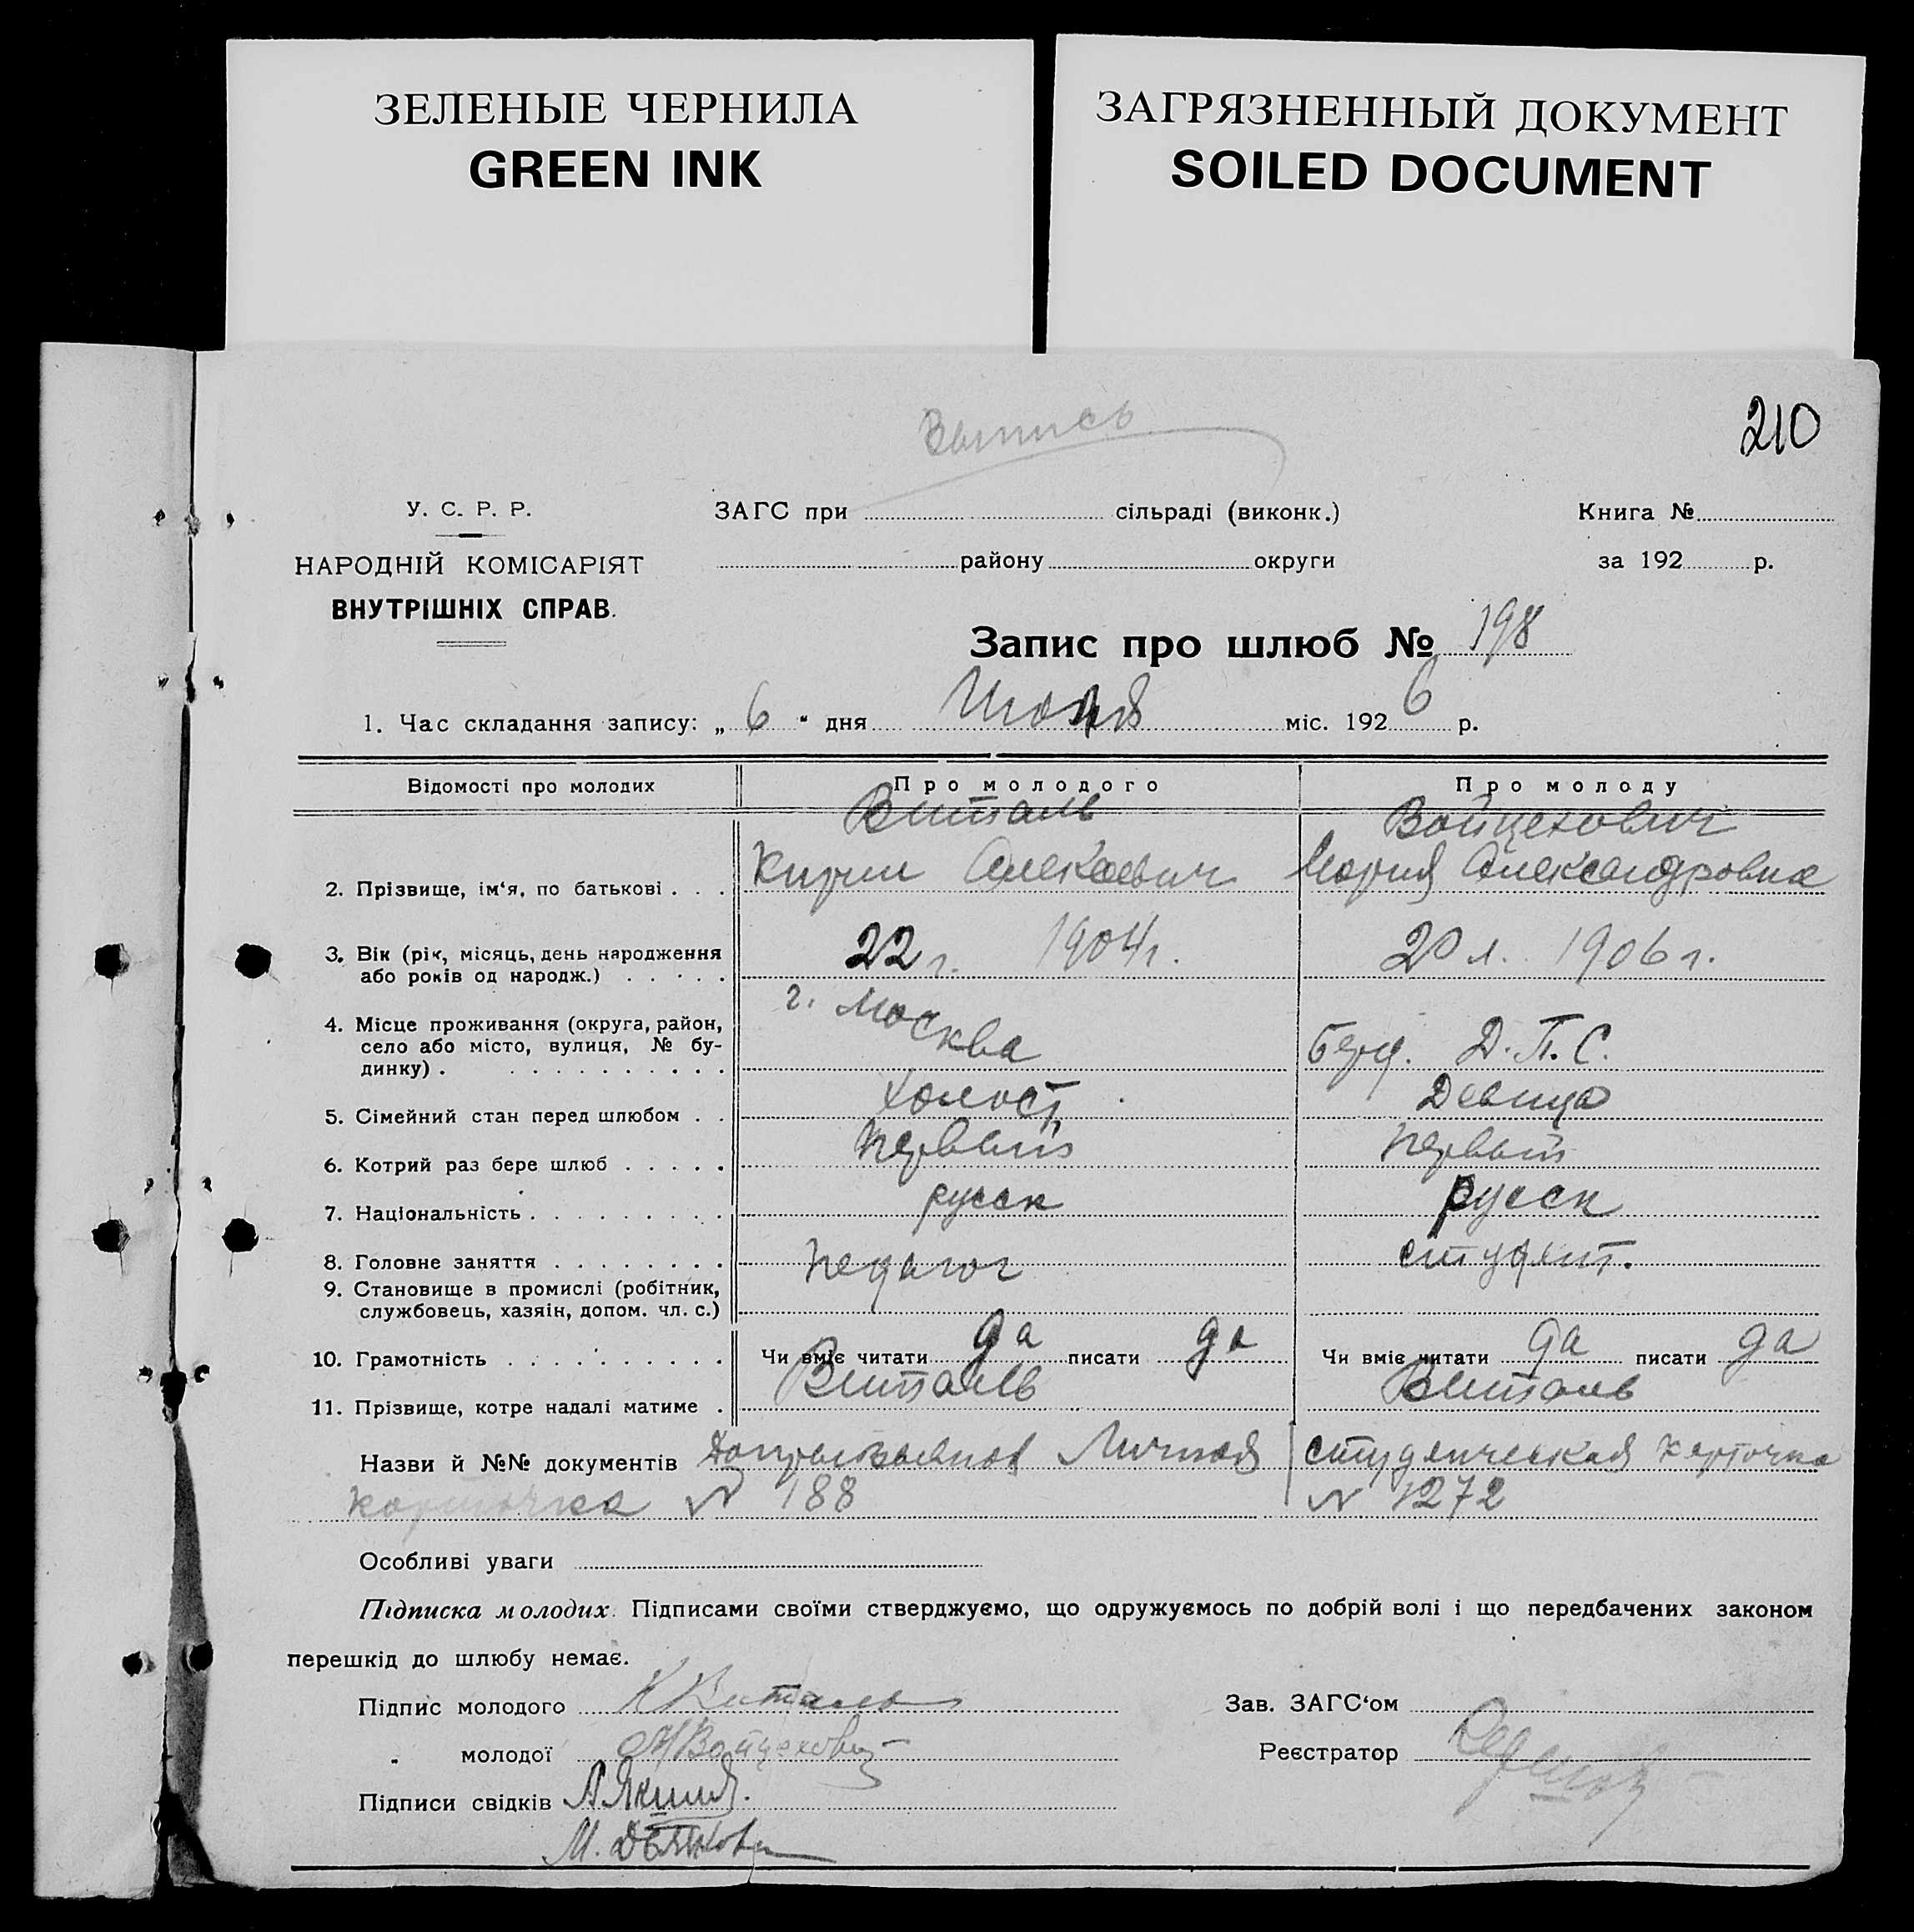 ЗЕЛЕНЫЕ ЧЕРНИЛА
GREEN INK
ЗАГРЯЗНЕННЫЙ ДОКУМЕНТ
SOILED DOCUMENT
210
У. С. Р. Р.
НАРОДНІЙ КОМІСАРІЯТ
ВНУТРІШНІХ СПРАВ.
ЗАГС при сільраді (виконк.)
району округи
Книга №
за 192 р.
Запис про шлюб № 198
1. Час складання запису: „ 6 “ дня міс. 192 6 р.
Відомості про молодих Про молодого Про молоду
Виталь Войцехович
2. Прізвище, ім‘я, по батькові . . . Кирил Алексеевич Мария Александровна
3. Вік (рік, місяць, день народження
або років од народж.) . . . . . 22 г. 1904 г. 20 л. 1906 г.
4. Місце проживання (округа, район, г. Москва
село або місто, вулиця, № бу-
динку) . . . . . . . . . . . Д. П. С.
5. Сімейний стан перед шлюбом . . холост Девица
6. Котрий раз бере шлюб . . . . . первый первый
7. Національність . . . . . . . . . русск русск
8. Головне заняття . . . . . . . . педагог студент.
9. Становище в промислі (робітник,
службовець, хазяін, допом. чл. с.)
10. Грамотність . . . . . . . . . . Чи вміє читати да писати да Чи вміє читати да писати да
11. Прізвище, котре надалі матиме . Виталь Виталь
Назви й №№ документів Личная студенческая карточка
карточка № 188 № 1272
Особливі уваги
Підписка молодих. Підписами своїми стверджуємо, що одружуємось по добрій волі і що передбачених законом
перешкід до шлюбу немає.
Підпис молодого К Виталь
„ молодої М Войцехович
Підписи свідків
М.
Зав. ЗАГС‘ом
Реєстратор